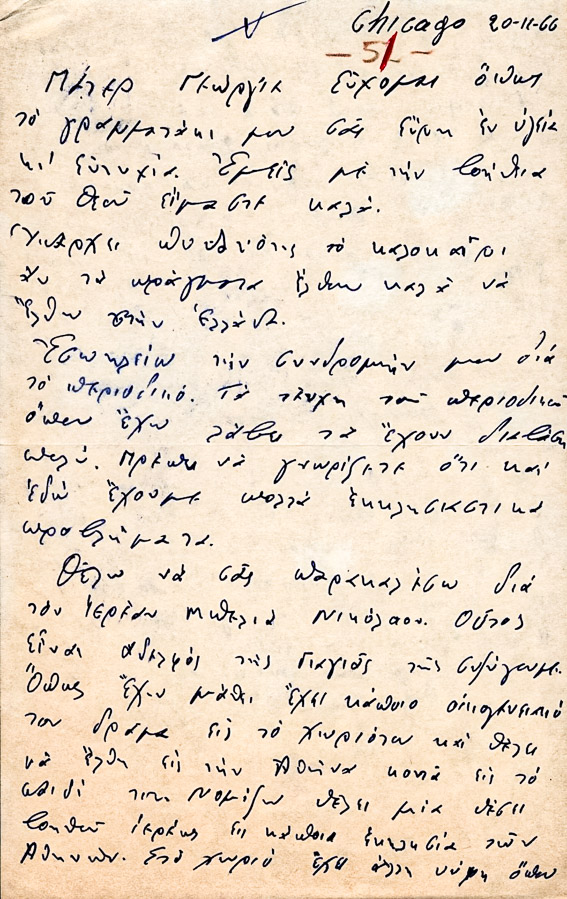 Chicago 20-11-66
- 51 -
Πάτερ Γεώργιε εὔχομαι ὅπως
τό γραμματάκι μου σᾶς εὕρῃ ἐν ὑγείᾳ
κι' εὐτυχίᾳ. Ἐμεῖς μέ τήν βοήθεια
τοῦ Θεοῦ εἴμαστε καλά.
Ὑπάρχει πιθανότης τό καλοκαῖρι
ἄν τά πράγματα ἔλθουν καλά νά
ἔλθω στήν Ἑλλάδα.
Ἐσωκλείω τήν συνδρομήν μου διά
τό περιοδικό. Τά τεύχη τοῦ περιοδικοῦ
ὅπου ἔχω λάβει τά ἔχουν διαβάσει
πολύ. Πρέπει νά γνωρίζετε ὅτι καί
ἐδῶ ἔχουμε πολλά ἐκκλησιαστικά
προβλήματα.
Θέλω νά σᾶς παρακαλέσω διά
τόν ἱερέαν Μπελιά Νικόλαον. Οὗτος
εἶναι ἀδελφός τῆς γιαγιᾶς τῆς συζύγου μου.
Ὅπως ἔχω μάθει ἔχει κάποιο οἰκογενειακό
του δράμα εἰς τό χωριό του καί θέλει
νά ἔλθῃ εἰς τήν Ἀθήνα κοντά εἰς τό
παιδί του. Νομίζω θέλει μία θέσι
βοηθοῦ ἱερέως εἰς κάποια ἐκκλησία τῶν
Ἀθηνῶν. Στό χωριό ἔχει ἄλλη νύφη ὅπου